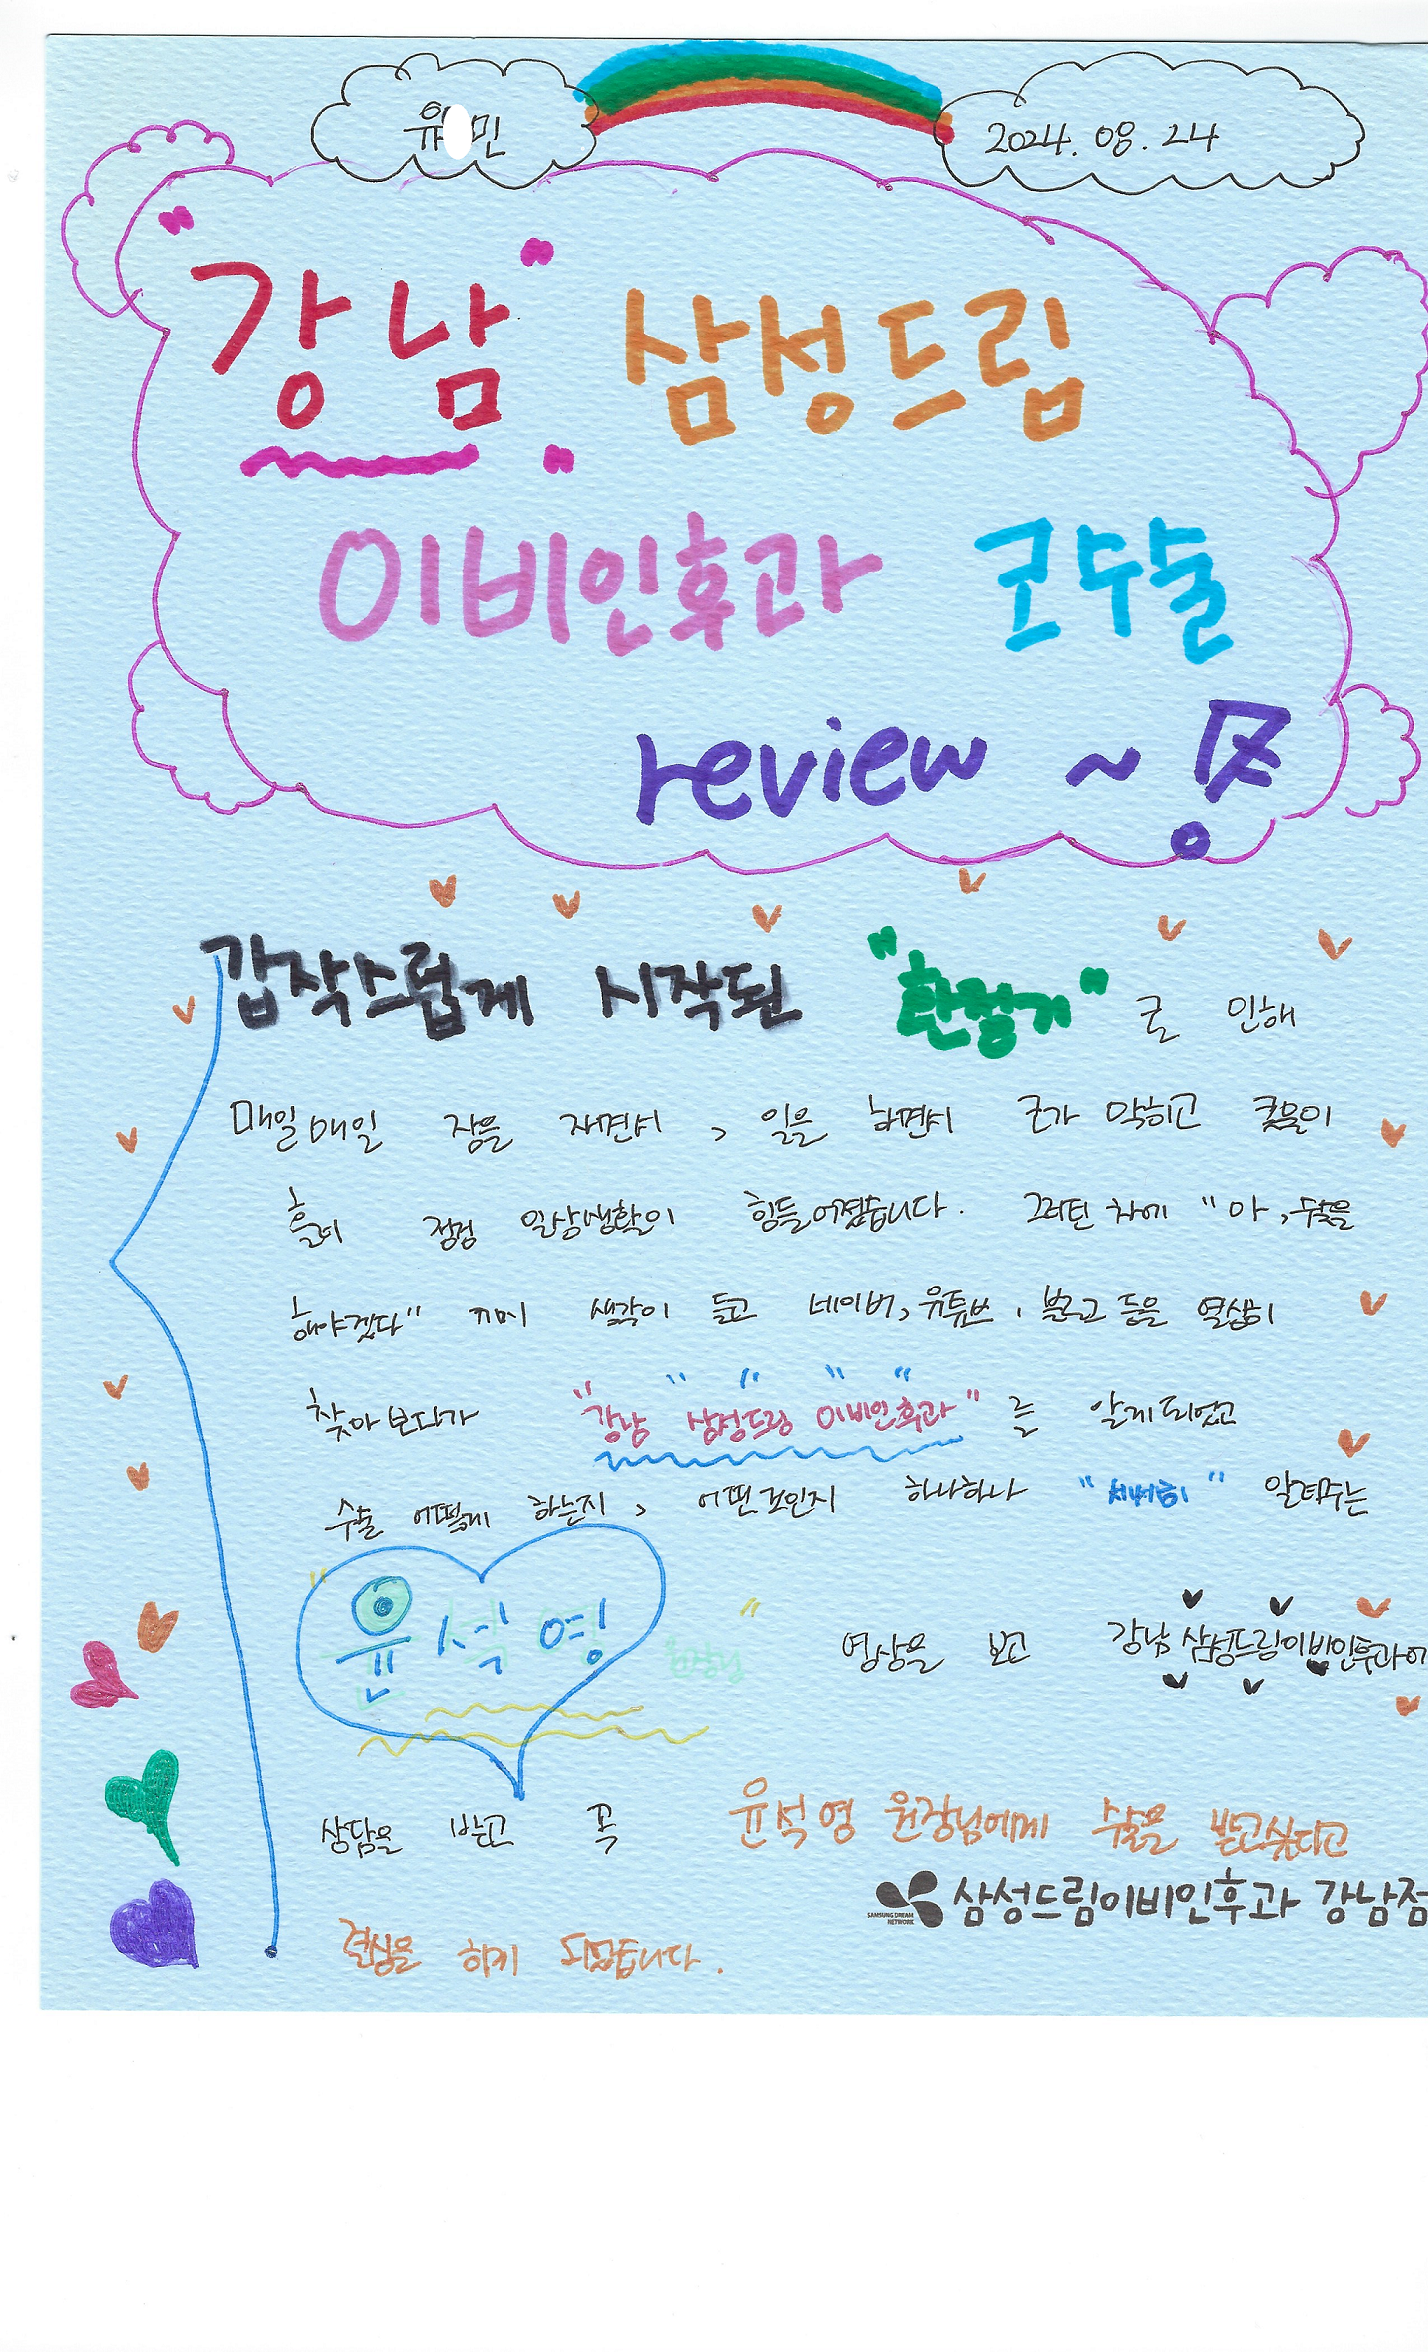 유 민
2024. 08. 24
"강남" 삼성드림
이비인후과 코수술
review ~
갑작스럽게 시작된 "환절기" 로 인해
매일매일 잠을 자면서, 일을 하면서 코가 막히고 콧물이
흘러 점점 일상생활이 힘들어졌습니다. 그러던 차에 "아, 수술을
해야겠다" 생각이 들고 네이버, 유튜브, 블로그 등을 열심히
찾아보다가 "강남 삼성드림 이비인후과" 를 알게되었고
수술 어떻게 하는지, 어떤것인지 하나하나 "세세히" 알려주는
"윤석영 원장님" 영상을 보고 강남 삼성드림이비인후과에
상담을 받고 꼭 윤석영 원장님에게 수술을 받고싶다고
삼성드림이비인후과 강남점
SAMSUNG DREAM
NETWORK
결심을 하게 되었습니다.